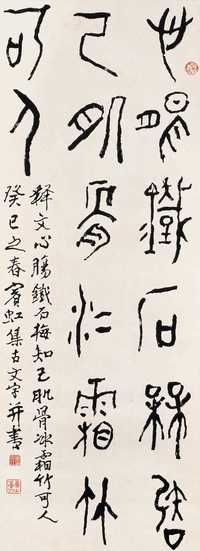 心腸鐵石梅知
己肌骨冰霜竹
可人
釋文心腸鐵石梅知己肌骨冰霜竹可人
癸巳之春賓虹集古文字并書